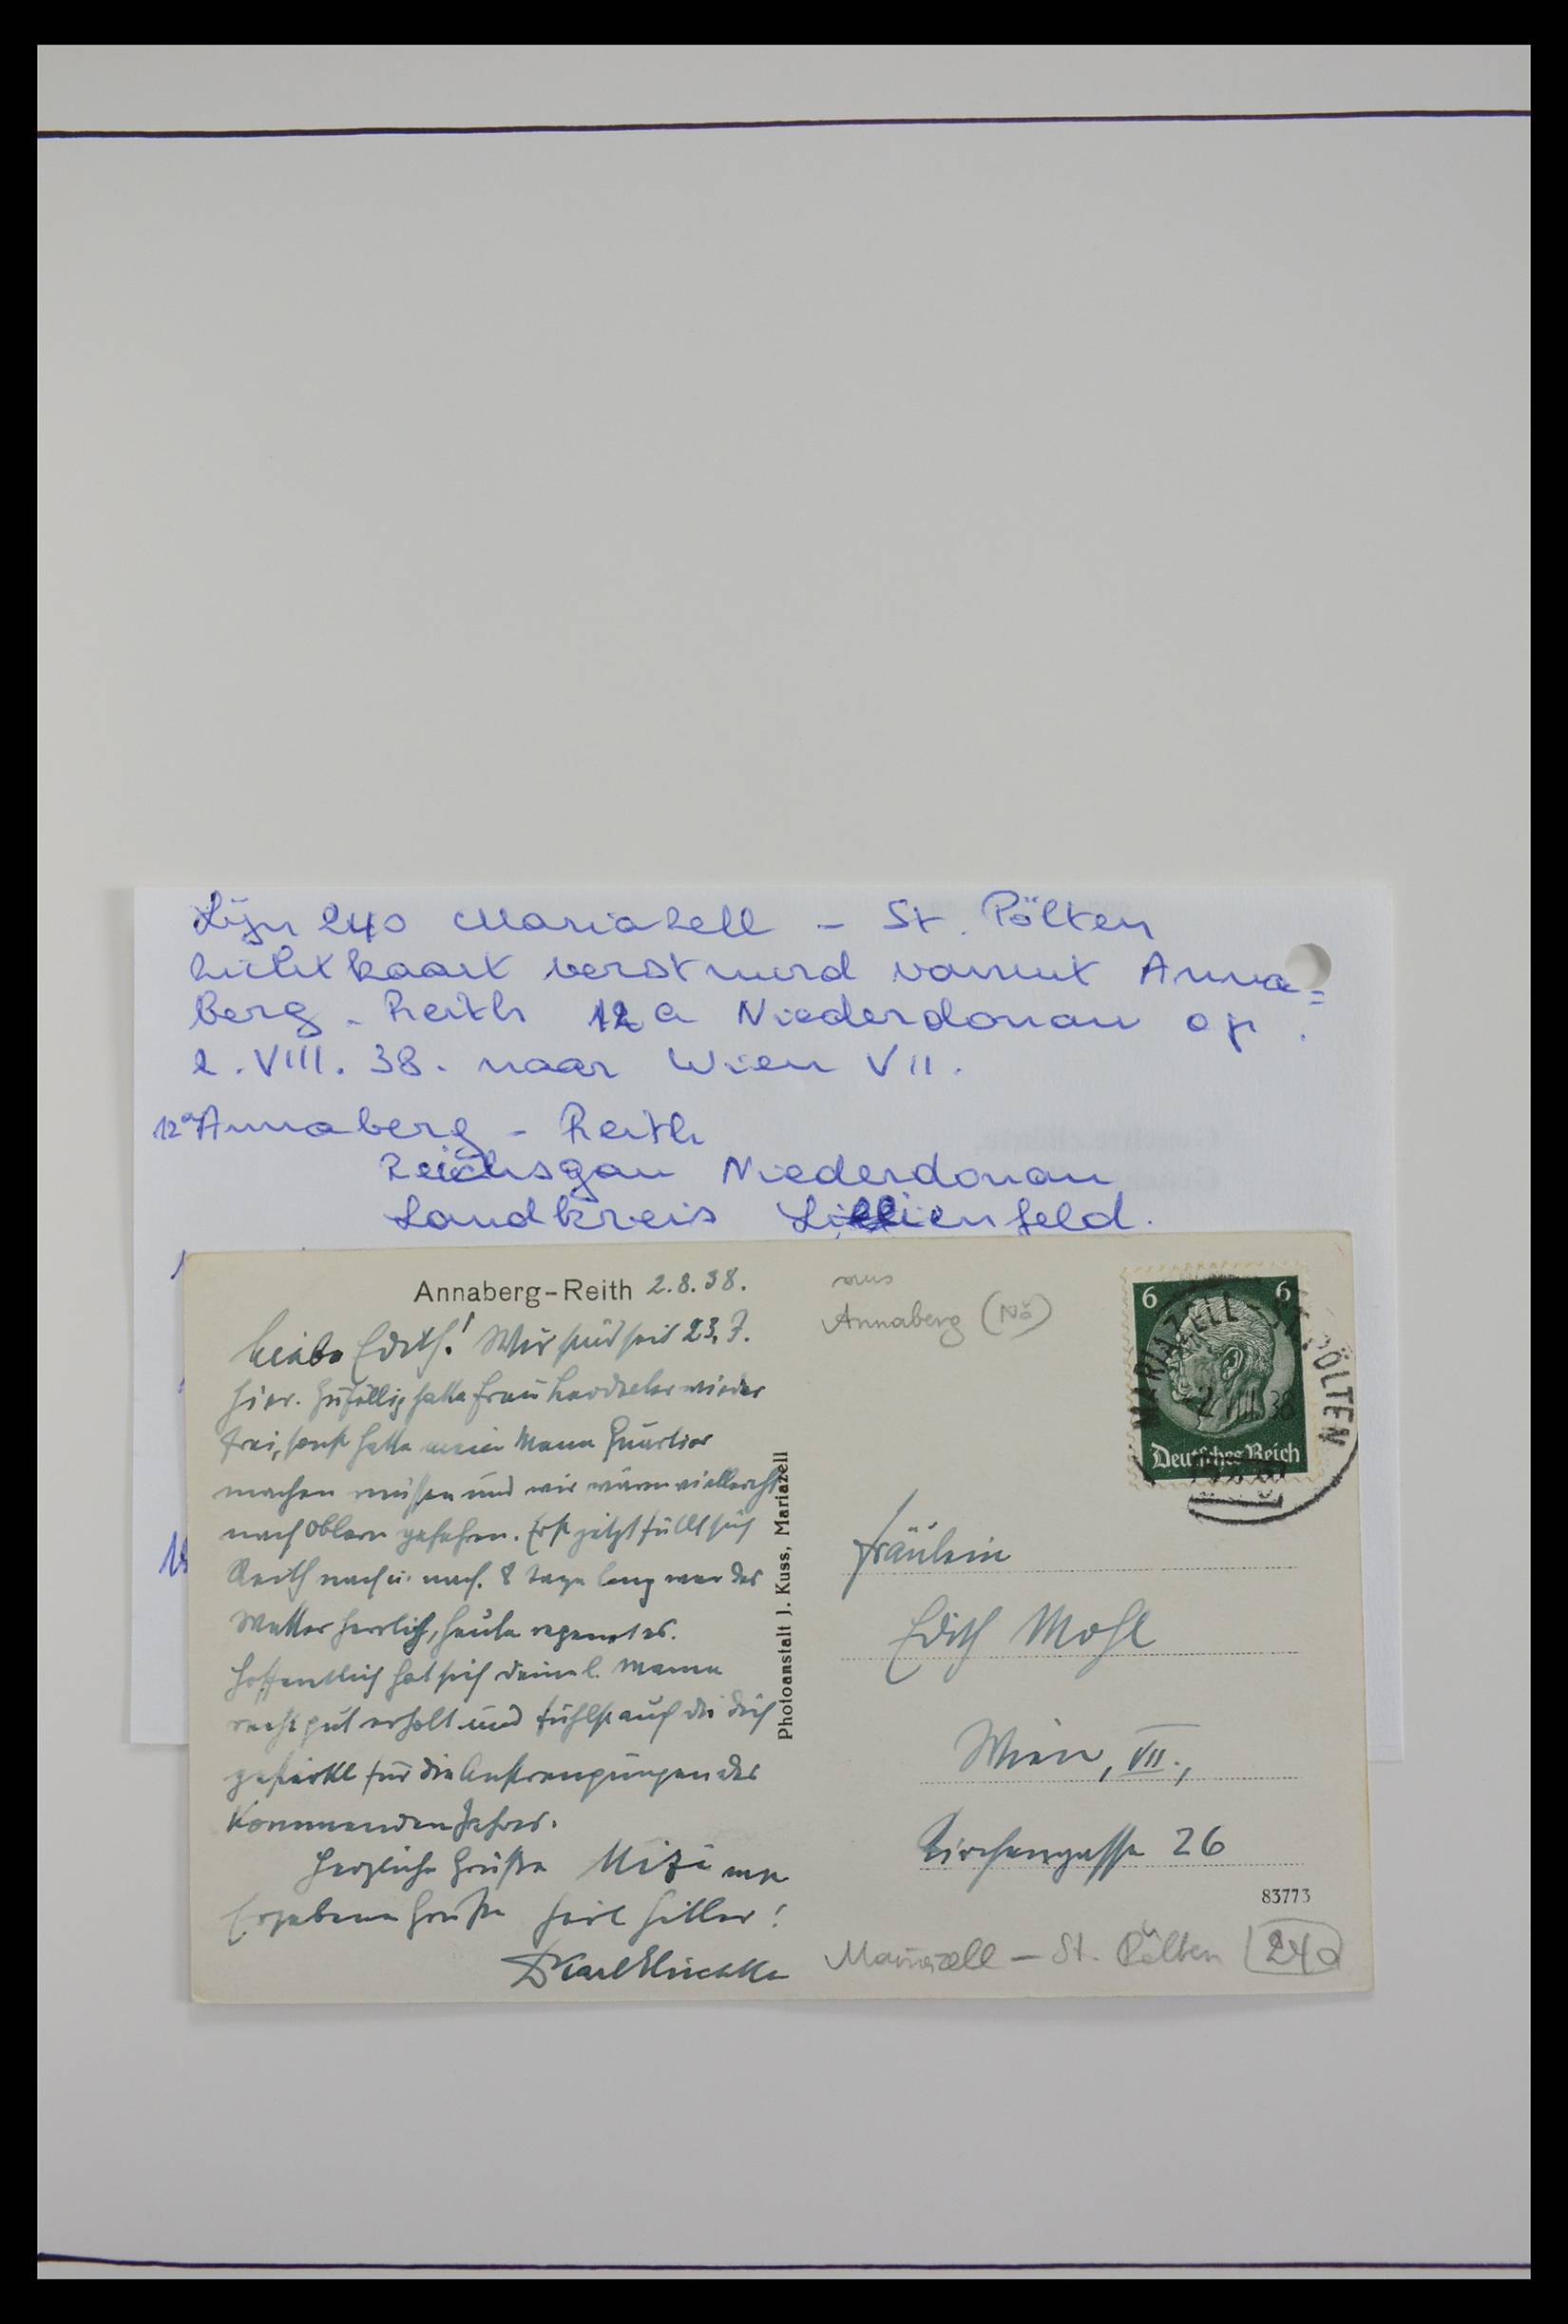 Lijn 240 Mariazell - St. Pölten
lichtkaart verstuurd vanuit Anna=
berg - Reith 12a Niederdonau op
2.VIII.38. naar Wien VII.
12a Annaberg - Reith
Reichsgau Niederdonau
Landkreis Lilienfeld.
Annaberg-Reith 2.8.38.
Liebe Edith! Wir sind seit 23.7.
hier. Zufällig hatte Frau wieder
frei, sonst hätte mein Mann Quartier
machen müssen und wir wären vielleicht
nach Oblarn gefahren. Erst jetzt füllt sich
Reith nach u. nach. 8 Tage lang war das
Wetter herrlich, heute regnet es.
Hoffentlich hat sich deine l. Mama
recht gut erholt und fühlst auch du dich
gestärkt für die Anstrengungen des
kommenden Jahres.
Herzliche Grüße Mizi
Ergebene Grüße Heil Hitler!
Karl
Photoanstalt J. Kuss, Mariazell
aus
Annaberg (NÖ)
6 6
Deutsches Reich
MARIAZELL - ST. PÖLTEN
Fräulein
Edith Mohl
Wien, VII.,
Kirchengasse 26
83773
Mariazell - St. Pölten 240